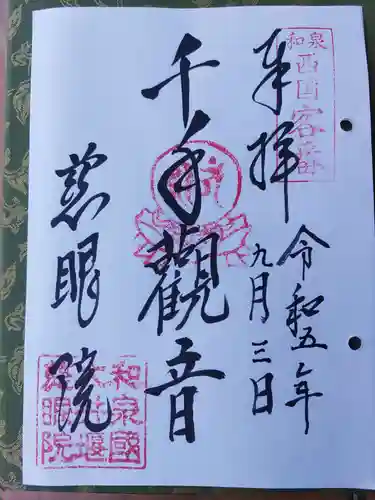 奉拝
令和五年
九月三日
千手觀音
慈眼院
和泉
西国客番
和泉國
慈眼院